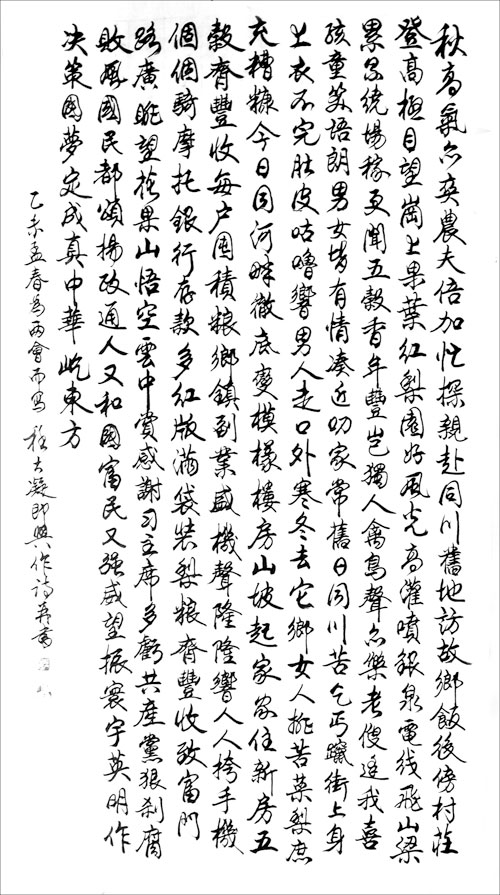 秋高氣亦爽農夫倍加忙探親赴同川舊地訪故鄉飯後傍村莊
登高極目望崗上果葉紅梨園好風光高灌噴銀泉電线飛山梁
累累繞場稼更聞五穀香年豐岂獨人禽鳥聲亦樂老傻逗我喜
孩童笑語朗男女皆有情凑近叨家常舊日同川苦乞丐躥街上身
上衣不完肚皮咕嚕響男人走口外寒冬去它鄉女人挑苦菜梨庶
充糟糠今日同河畔徹底變模樣樓房山坡起家家住新房五
穀齊豐收每户囤積粮鄉鎮副業盛機聲隆隆響人人挎手機
個個騎摩托銀行存款多紅版滿袋裝梨粮齊豐收致富門
路廣眺望花果山悟空雲中賞感謝习主席多虧共産黨狠刹腐
敗風國民都頌揚政通人又和國富民又强威望振寰宇英明作
决策國夢定成真中華屹東方
乙未孟春為两會而寫 大凝即興作詩并書